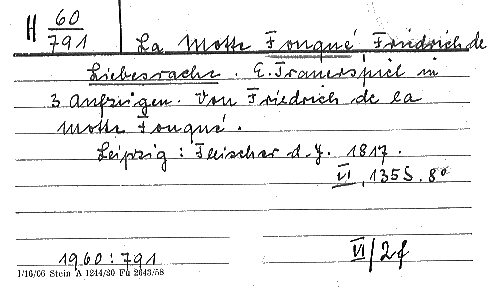 H 60/791 La Motte Fouqué Friedrich de
Liebesrache. E. Trauerspiel in
3 Aufzügen. Von Friedrich de la
Motte Fouqué.
Leipzig: Fleischer d. J. 1817.
VI, 135 S. 8°
1960:791 VI/2f
1/16/06 Stein A 1244/30 Fu 2643/58